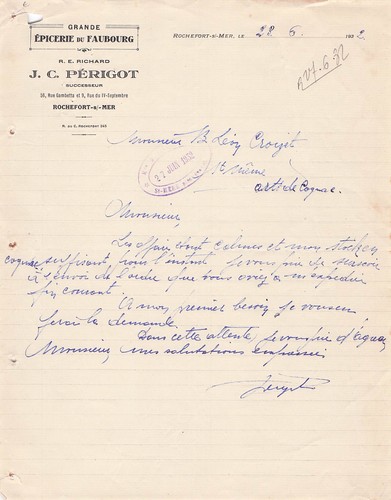 GRANDE
ÉPICERIE DU FAUBOURG
R. E. RICHARD
J. C. PÉRIGOT
SUCCESSEUR
38, Rue Gambetta et 9, Rue du 14-Septembre
ROCHEFORT-S/-MER
ROCHEFORT-S/-MER, LE 22 6. 1932
27 JUIN 1932
Monsieur B. Léon Croizet
St Même
art de Cognac.
Monsieur,
Les affaires sont calmes et mon stock en
cognac suffisant, pour l'instant je vous prie de surseoir
à l'envoi de l'ordre que vous aviez à m'expédier
fin courant.
A mon premier besoin je vous en
ferai la demande.
Dans cette attente, je vous prie d'agréer
Monsieur, mes salutations empressées